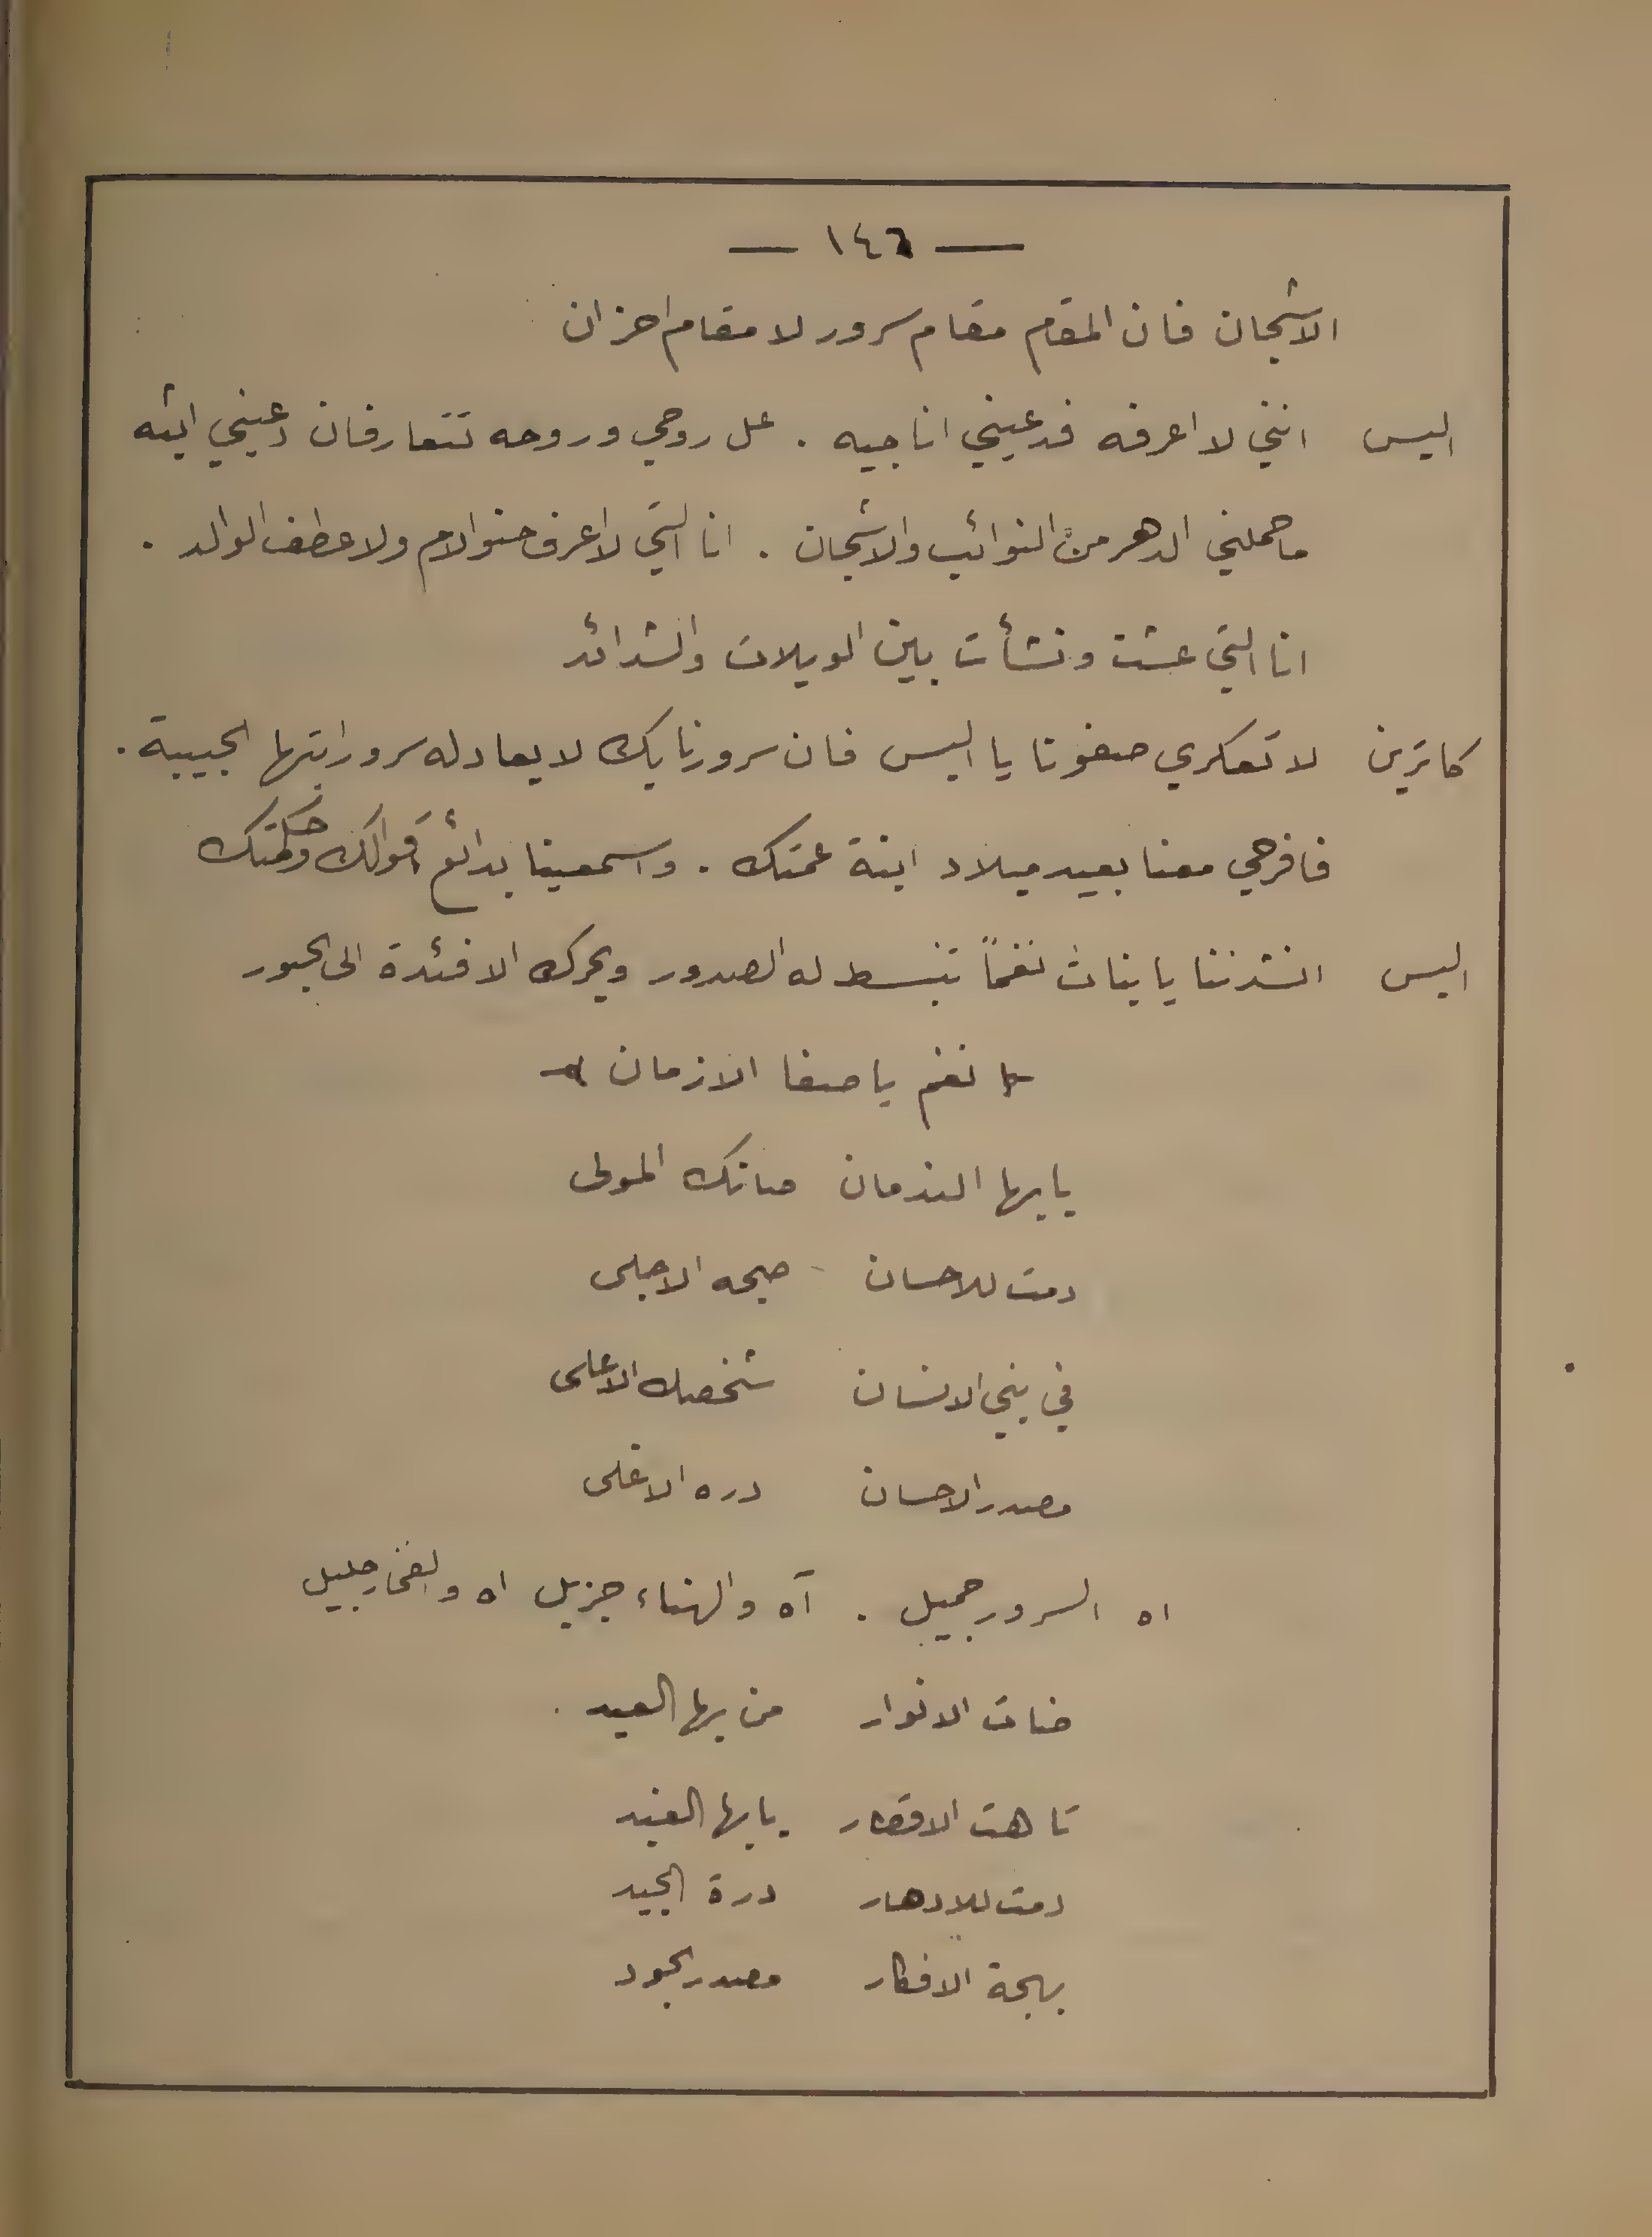 — ١٤٦ —
الاشجان فان المقام مقام سرور لا مقام احزان
اليس انني لا اعرفه فدعيني اناجيه . عل روحي وروحه تتعارفان دعيني ابثه
ما حملني الدهر من النوائب والاشجان . انا التي لا اعرف حنو الام ولا عطف الوالد .
انا التي عشت ونشأت بين الويلات والشدائد
كاترين لا تعكري صفونا يا اليس فان سرورنا بك لا يعادله سرور ابنتها الحبيبة .
فافرحي معنا بعيد ميلاد ابنة عمتك . واسمعينا بدائع اقوالك وحكمتك
اليس انشدننا يا بنات نغماً تنبسط له الصدور ويحرك الافئدة الى الحبور
نغم يا صفا الازمان
يا بها الندمان صانك المولى
دمت للاحسان صبحه الاجلى
في بني الانسان شخصك الاعلى
مصدر الاحسان دره الاغلى
اه السرور جميل . آه والهناء جزيل اه والفخار جليل
ضات الانوار من بها العيد .
تاهت الاقطار يا بها الغيد
دمت للادهار درة الجيد
بهجة الافكار مصدر الجود